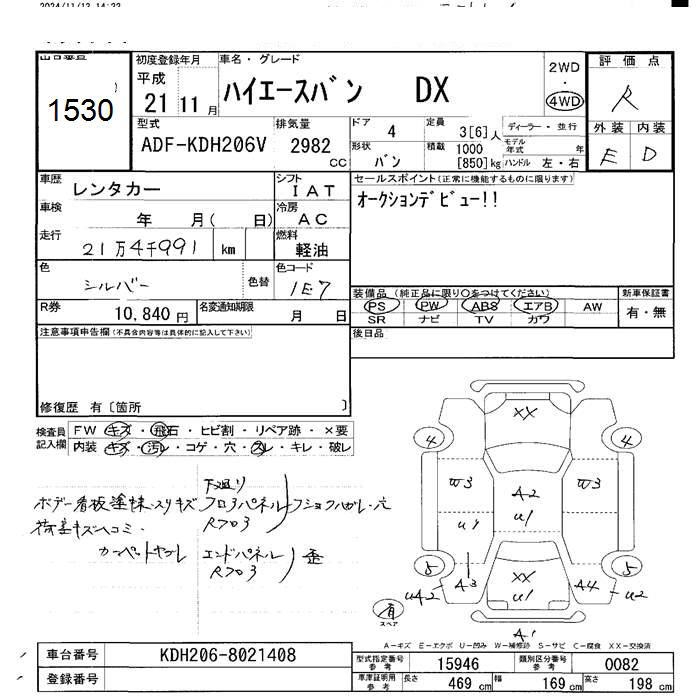 2024/11/13 14:33
1530
初度登録年月
平成
21 11 月
車名・グレード
ハイエースバン DX
2WD
・
4WD
評価点
R
外装 内装
E D
型式
ADF-KDH206V
排気量
2982 cc
ドア
4
定員
3[6]人
ディーラー・並行
形状
バン
積載
1000
[850]kg
モデル年式 年
ハンドル 左・右
車歴
レンタカー
シフト
IAT
セールスポイント(正常に機能するものに限ります)
オークションデビュー!!
車検
年 月( 日)
冷房
AC
走行
21万4千991 km
燃料
軽油
色
シルバー
色替
色コード
1E7
装備品(純正品に限り○をつけてください)
PS PW ABS エアB AW
SR ナビ TV カワ
新車保証書
有・無
R券
10,840 円
名変通知期限
月 日
後日品
注意事項申告欄(不具合内容等は具体的に記入して下さい)
修復歴 有〔箇所 〕
検査員記入欄
FW キズ・飛石・ヒビ割・リペア跡・×要
内装 キズ・汚レ・コゲ・穴・スレ・キレ・破レ
下廻り
ボデー看板塗抹スリキズ フロアパネル フショクハガレ・穴
Rフロア
荷室キズヘコミ・
エンドパネル 歪
Rフロア
XX
4 4
W3 A2 W3
U1 U1
5 5
XX
UA2 A3 U1 A4 U2
A1
有
スペア
A-キズ E-エクボ U-凹み W-補修跡 S-サビ C-腐食 XX-交換済
車台番号
KDH206-8021408
登録番号
型式指定番号 参考
15946
類別区分番号 参考
0082
車庫証明用 参考
長さ 469 cm 幅 169 cm 高さ 198 cm